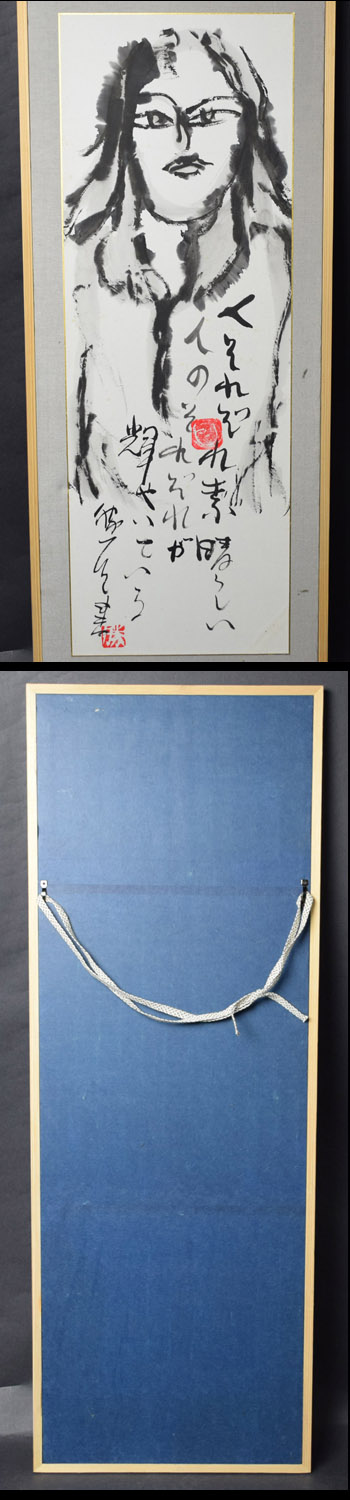 人それぞれ素晴らしい
人のそれぞれが
輝やいている
勝